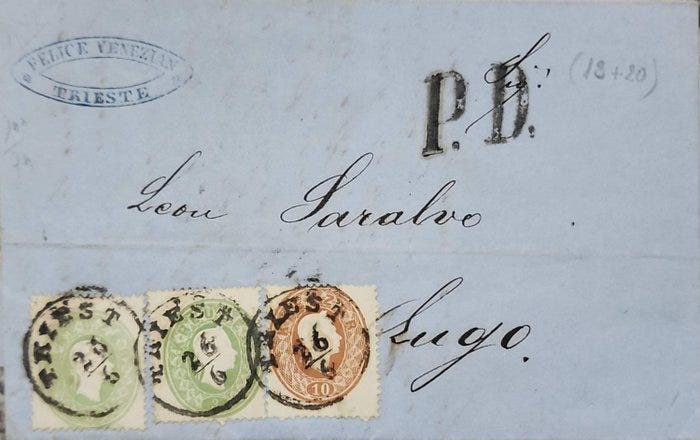 FELICE VENEZIAN
TRIESTE
P. D.
Sig:
(19+20)
Leon Saralvo
Lugo.
TRIEST
26/6
TRIEST
26/6
TRIEST
26/6
10